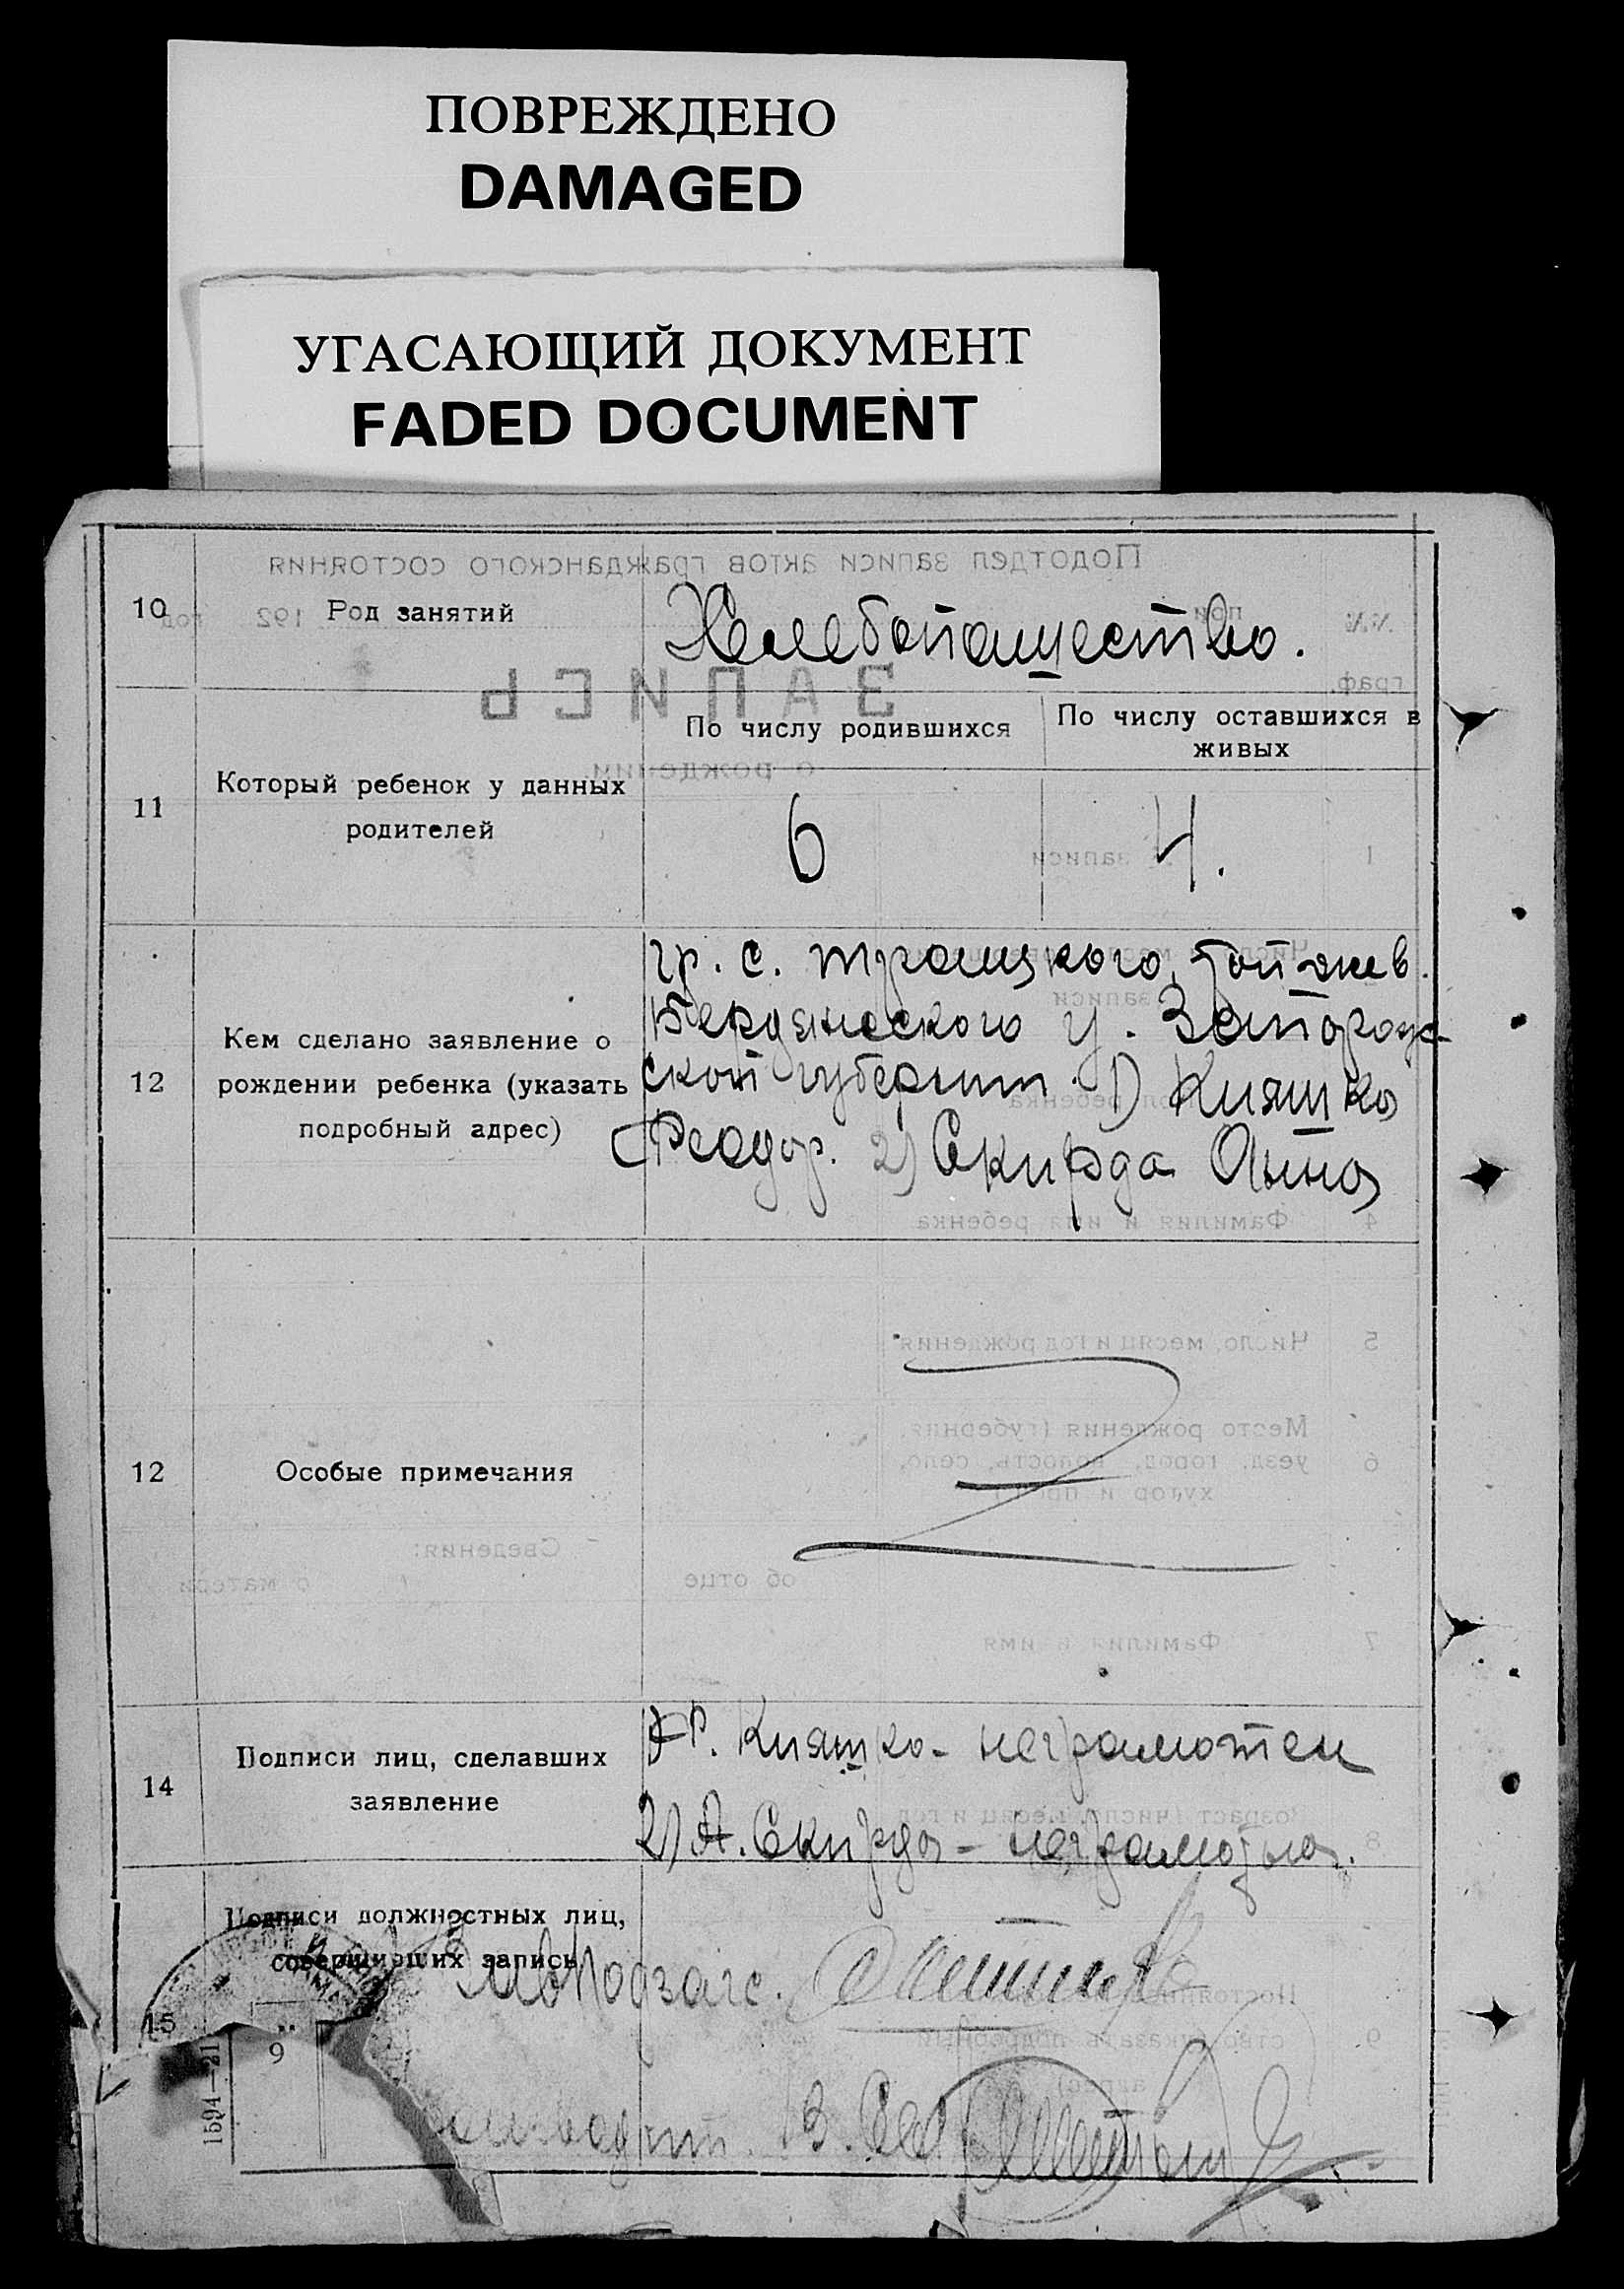 ПОВРЕЖДЕНО
DAMAGED
УГАСАЮЩИЙ ДОКУМЕНТ
FADED DOCUMENT
10 Род занятий Хлебопашество.
По числу родившихся По числу оставшихся в
живых
11 Который ребенок у данных
родителей
6 4.
12 Кем сделано заявление о
рождении ребенка (указать
подробный адрес)
гр. с. Троицкого, той-же в.
Бердянского у. Запорож-
ской губернии. 1) Кияшко
Феодор. 2) Скирда Анна
12 Особые примечания
14 Подписи лиц, сделавших
заявление
Ф. Кияшко - неграмотен
2) А. Скирда - неграмотна.
Подписи должностных лиц,
совершивших запись
15
подзагс.
9
1594—21